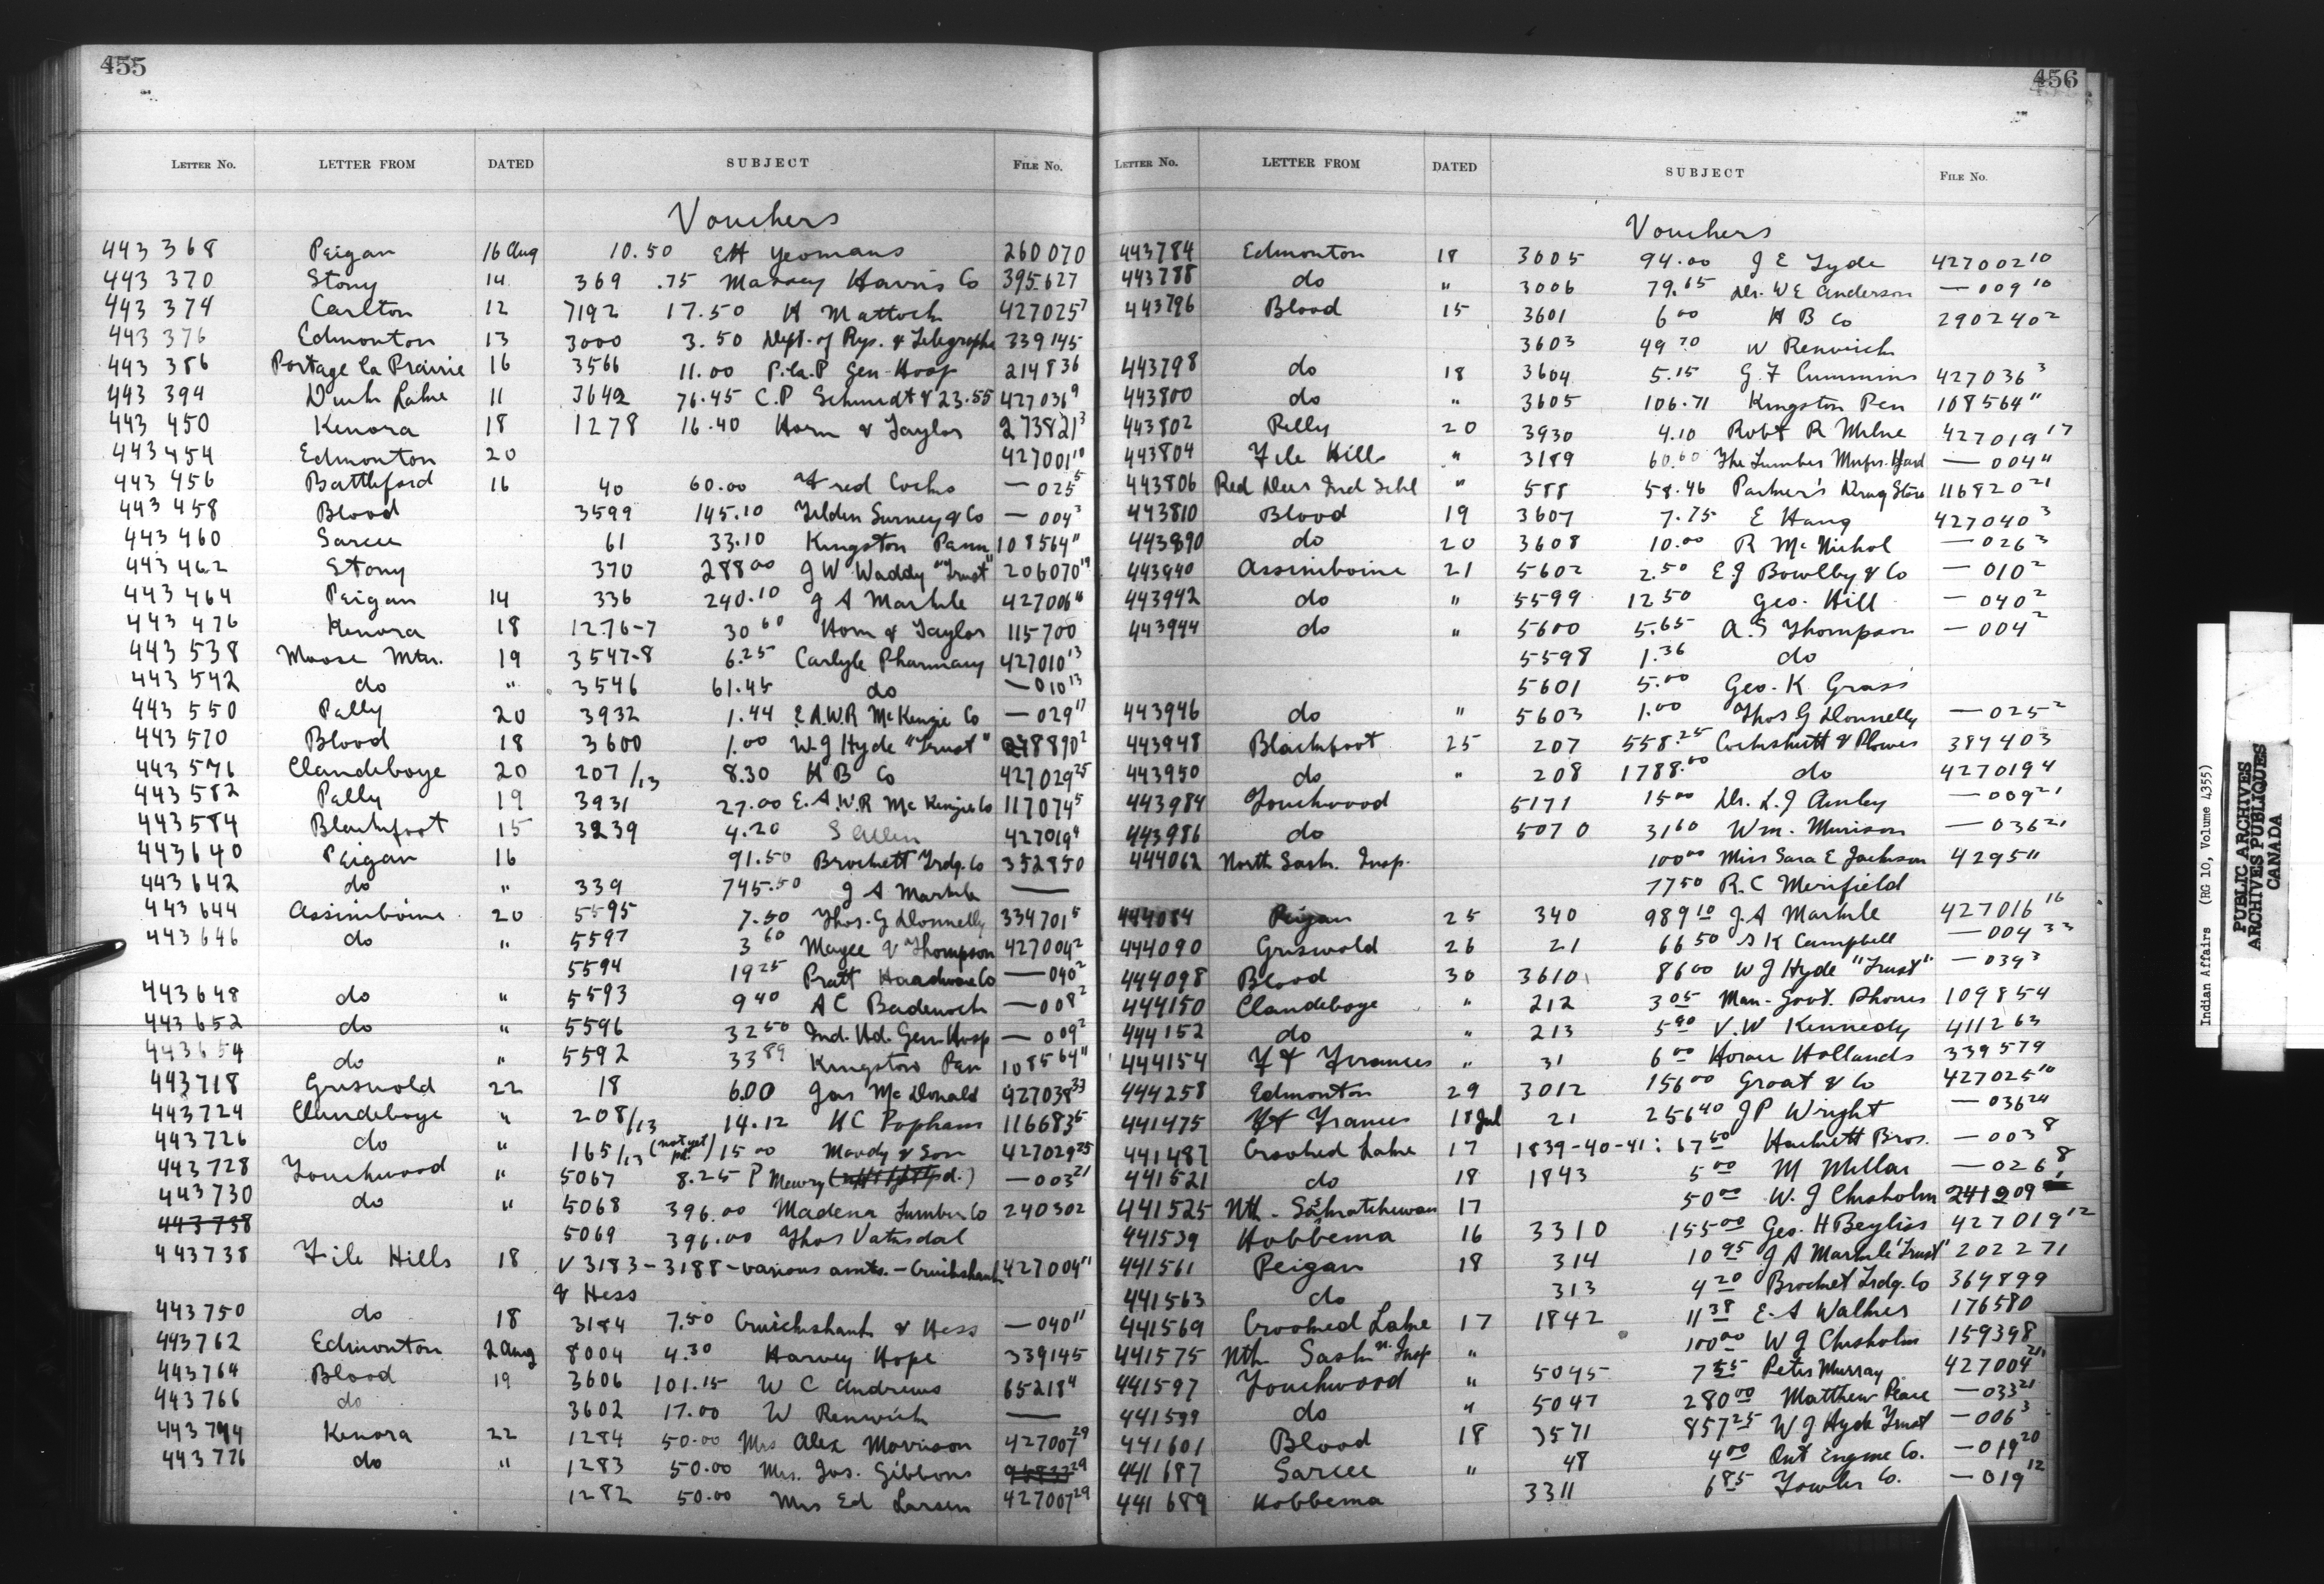 455
LETTER NO. LETTER FROM DATED SUBJECT FILE No.
Vouchers
443 368 Peigan 16 Aug 10.50 EH Yeomans 260 070
443 370 Stony 14 369 .75 Massey Harris Co 395627
443 374 Carlton 12 7192 17.50 H Mattoch 427025 7
443 376 Edmonton 13 3000 3.50 Dept. of Rys. & Telegraphs 339145
443 386 Portage la Prairie 16 3566 11.00 P. la. P Gen Hosp 214836
443 394 Duck Lake 11 3642 76.45 C.P Schmidt & 23.55 427036 9
443 450 Kenora 18 1278 16.40 Horn & Taylor 273821 3
443454 Edmonton 20 427001 10
443 456 Battleford 16 40 60.00 Fred Cocks — 025 5
443 458 Blood 3599 145.10 Tilden Gurney & Co — 004 3
443 460 Sarcee 61 33.10 Kingston Penn 108564 11
443 462 Stony 370 288 00 J W Waddy "Trust" 206070 19
443 464 Peigan 14 336 240.10 J A Markle 427006 4
443 476 Kenora 18 1276-7 30 60 Horn & Taylor 115700
443 538 Moose Mtn. 19 3547-8 6.25 Carlyle Pharmacy 427010 13
443 542 do " 3546 61.45 do — 010 13
443 550 Pelly 20 3932 1.44 E.A.W.R McKenzie Co — 029 17
443 570 Blood 18 3600 1.00 W.J Hyde "Trust" 248890 2
443 576 Clandeboye 20 207/13 8.30 H B Co 427029 25
443 582 Pelly 19 3931 27.00 E.A.W.R McKenzie Co 117074 5
443 584 Blackfoot 15 3239 4.20 S Allen 427019 4
443 640 Peigan 16 91.50 Brockett Trdg. Co 352850
443 642 do " 339 745.50 J A Markle —
443 644 Assiniboine 20 5595 7.50 Thos. G Donnelly 334701 5
443 646 do " 5597 3 60 Magee & Thompson 427004 2
5594 19 25 Pratt Hardware Co — 040 2
443 648 do " 5593 9 40 A C Badenoch — 008 2
443 652 do " 5596 32 50 Ind. Hd. Gen Hosp — 009 2
443 654 do " 5592 33 89 Kingston Pen 108564 11
443718 Griswold 22 18 6.00 Jas McDonald 427038 33
443724 Clandeboye " 208/13 14.12 H C Popham 116683 5
443726 do " 165/13 (not yet pd.) 15 00 Moody & Son 427029 25
443728 Touchwood " 5067 8.25 P Mewry — 003 21
443730 do " 5068 396.00 Madena Lumber Co 240302
443738 5069 396.00 Thos Vatnsdal
443738 File Hills 18 V 3183 - 3188 - various amts. - Cruickshank 427004 11
& Hess
443750 do 18 3184 7.50 Cruickshank & Hess — 040 11
443762 Edmonton 2 Aug 8004 4.30 Harvey Hope 339145
443764 Blood 19 3606 101.15 W C Andrews 65218 4
443766 do 3602 17.00 W Renwick —
443794 Kenora 22 1284 50.00 Mrs Alex Morrison 427007 29
443776 do " 1283 50.00 Mrs. Jos. Gibbons
1282 50.00 Mrs Ed Larsen 427007 29
456
LETTER NO. LETTER FROM DATED SUBJECT FILE No.
Vouchers
443784 Edmonton 18 3005 94.00 J E Lyde 427002 10
443788 do " 3006 79.65 Dr. W E Anderson — 009 10
443796 Blood 15 3601 6 00 H B Co 290240 2
3603 49 70 W Renwick
443798 do 18 3604 5.15 G. F Cummins 427036 3
443800 do " 3605 106.71 Kingston Pen 108564 11
443802 Pelly 20 3930 4.10 Robt R Milne 427019 17
443804 File Hills " 3189 60.60 The Lumber Mnfrs. Yard — 004 11
443806 Red Deer Ind Schl " 588 58.46 Parker's Drug Store 116820 21
443810 Blood 19 3607 7.75 E Haug 427040 3
443890 do 20 3608 10.00 R McNichol — 026 3
443940 Assiniboine 21 5602 2.50 E.J Bowlby & Co — 010 2
443942 do " 5599 12 50 Geo. Hill — 040 2
443944 do " 5600 5.65 A.S Thompson — 004 2
5598 1.36 do
5601 5.00 Geo. K Grass
443946 do " 5603 1.00 Thos G Donnelly — 025 2
443948 Blackfoot 25 207 558.25 Cockshutt & Plows 387403
443950 do " 208 1788.00 do 427019 4
443984 Touchwood 5171 15 00 Dr. L. J Ainley — 009 21
443986 do 5070 31 60 Wm. Murison — 036 21
444062 North Sask. Insp. 100 00 Miss Sara E Jackson 4295 11
77 50 R.C Merifield
444084 Peigan 25 340 989 10 J.A Markle 427016 16
444090 Griswold 26 21 66 50 S K Campbell — 004 33
444098 Blood 30 3610 86 00 W J Hyde "Trust" — 039 3
444150 Clandeboye " 212 3 05 Man. Govt. Phones 109854
444152 do " 213 5 90 V.W Kennedy 411263
444154 Ft Frances " 31 6 00 Horace Hollands 339579
444258 Edmonton 29 3012 156 00 Groat & Co 427025 10
441475 Ft Frances 18 Jul 21 256 40 J P Wright — 036 24
441487 Crooked Lake 17 1839-40-41: 67 50 Hackett Bros. — 003 8
441521 do 18 1843 5 00 M Millar — 026 8
441525 Nth. Saskatchewan 17 50 00 W. J Chisholm 241209
441539 Hobbema 16 3310 155 00 Geo. H Bayliss 427019 12
441561 Peigan 18 314 10 95 J A Markle "Trust" 202271
441563 do 313 4 20 Brocket Trdg. Co 364899
441569 Crooked Lake 17 1842 11 38 E. A Walker 176580
441575 Nth Sask n. Insp " 100 00 W J Chisholm 159398
441597 Touchwood " 5045 7 55 Peter Murray 427004 21
441599 do " 5047 280 00 Matthew Peace — 033 21
441601 Blood 18 3571 857 25 W J Hyde Trust — 006 3
441687 Sarcee " 48 4 00 Ont Engine Co. — 019 20
441689 Hobbema 3311 6 85 Fowler Co. — 019 12
Indian Affairs (RG 10, Volume 4355)
PUBLIC ARCHIVES
ARCHIVES PUBLIQUES
CANADA